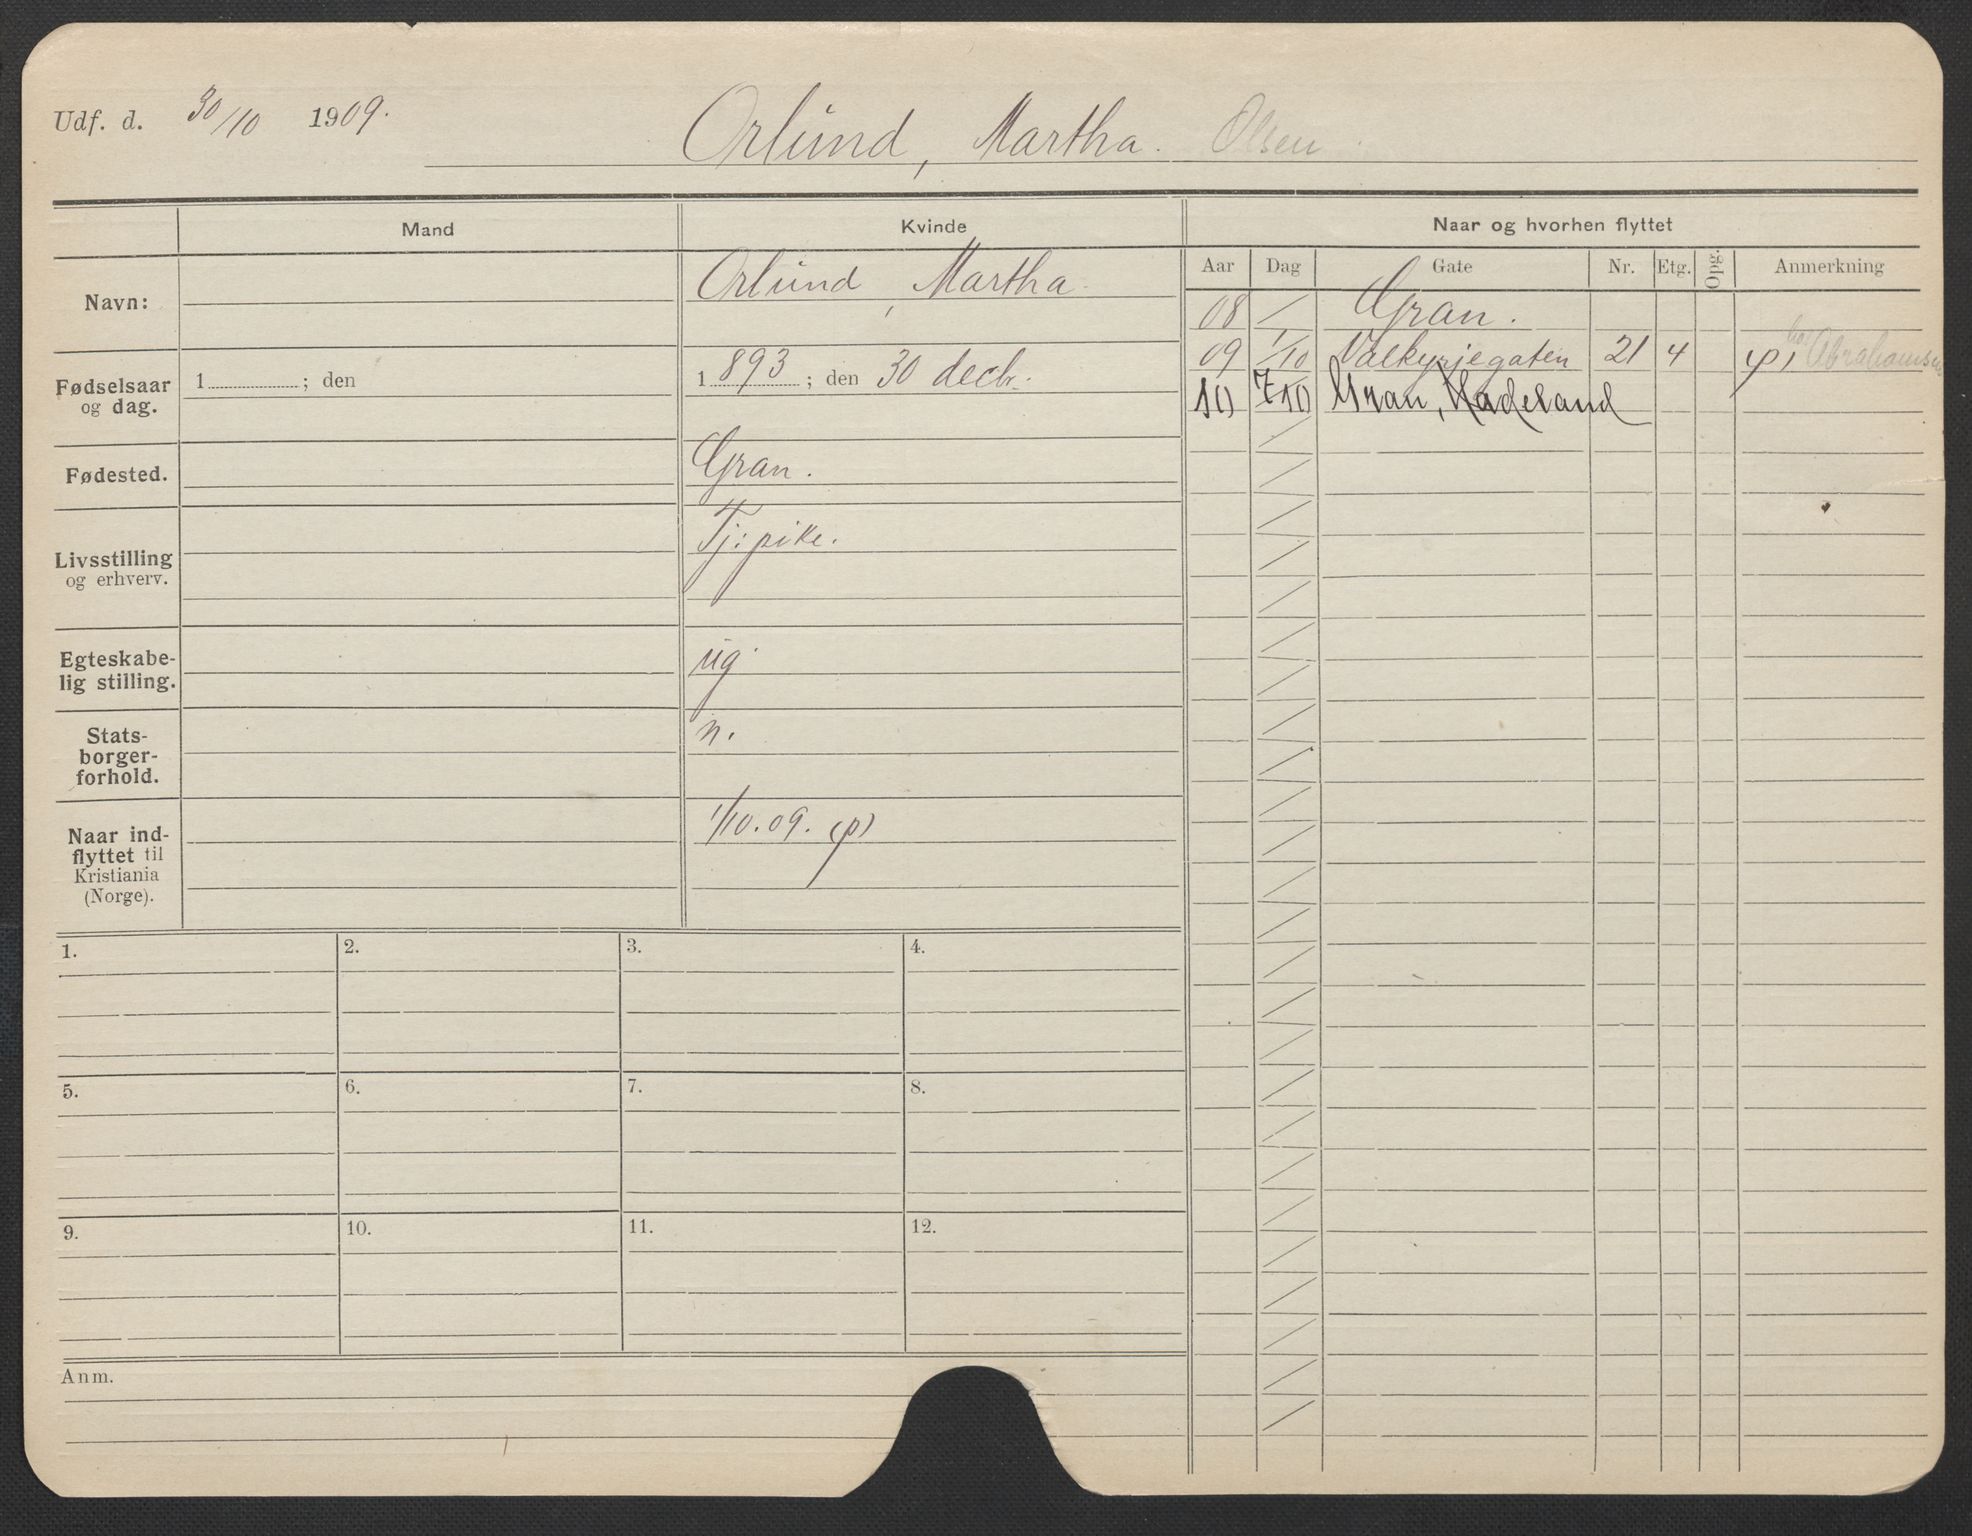 Udf. d. 30/10 1909.
Orlund, Martha. Olsen.
Mand Kvinde Naar og hvorhen flyttet
Aar Dag Gate Nr. Etg. Opg. Anmerkning
Navn: Orlund, Martha.
Fødselsaar og dag. 1 ; den 1893 ; den 30 decbr.
Fødested. Gran.
Livsstilling og erhverv. Tj: pike.
Egteskabe-
lig stilling. ug
Stats-
borger-
forhold. n.
Naar ind-
flyttet til
Kristiania
(Norge). 1/10.09. (p)
08 / Gran.
09 1/10 Valkyrjegaten 21 4 (p) hos Abrahamsen
10 7/10 Gran, Hadeland
1. 2. 3. 4.
5. 6. 7. 8.
9. 10. 11. 12.
Anm.